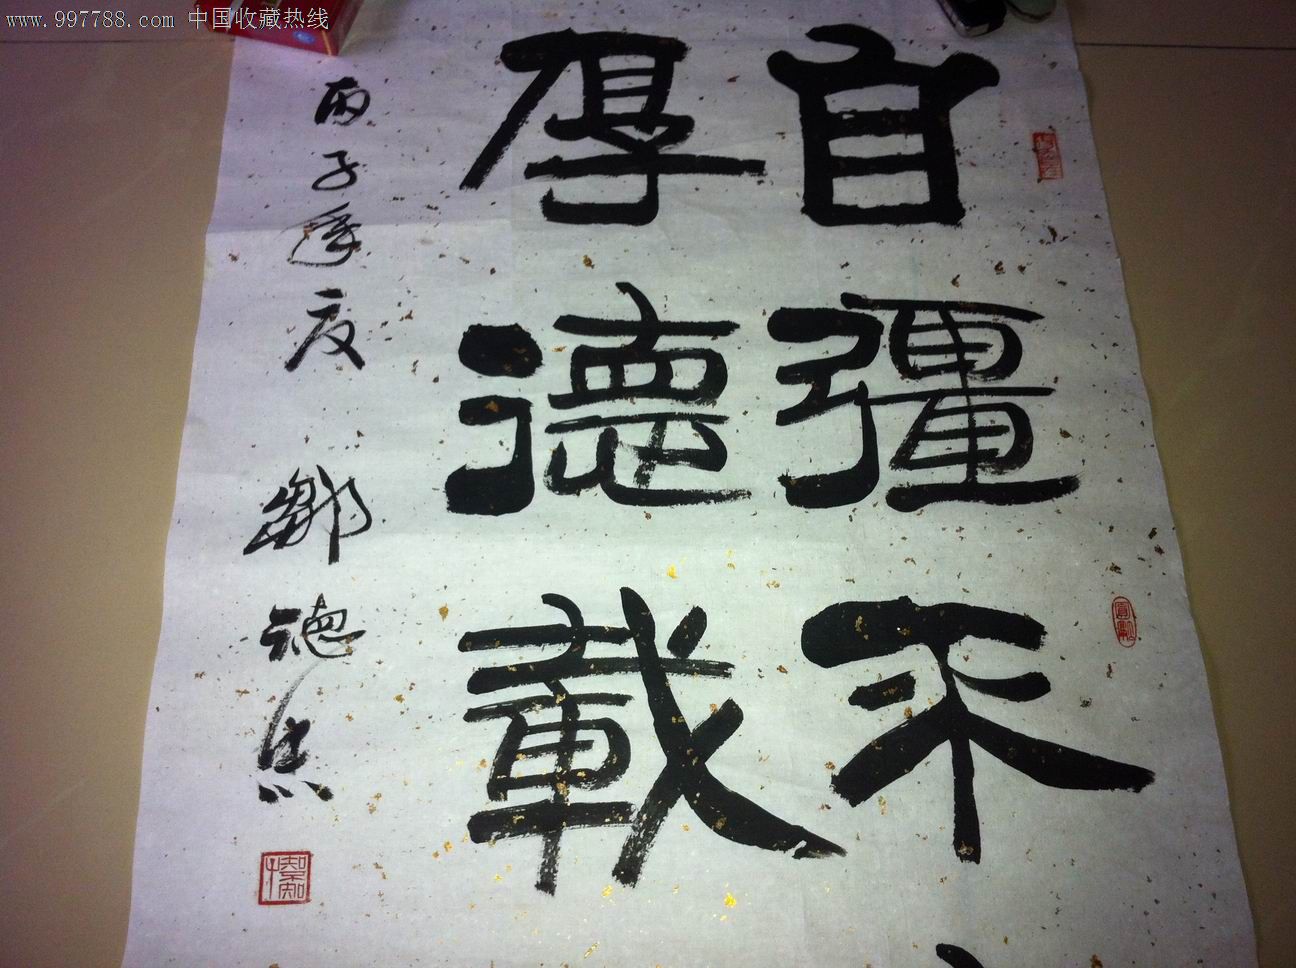 www.997788.com 中国收藏热线
自彊不
厚德載
丙子年夏 鄒德忠